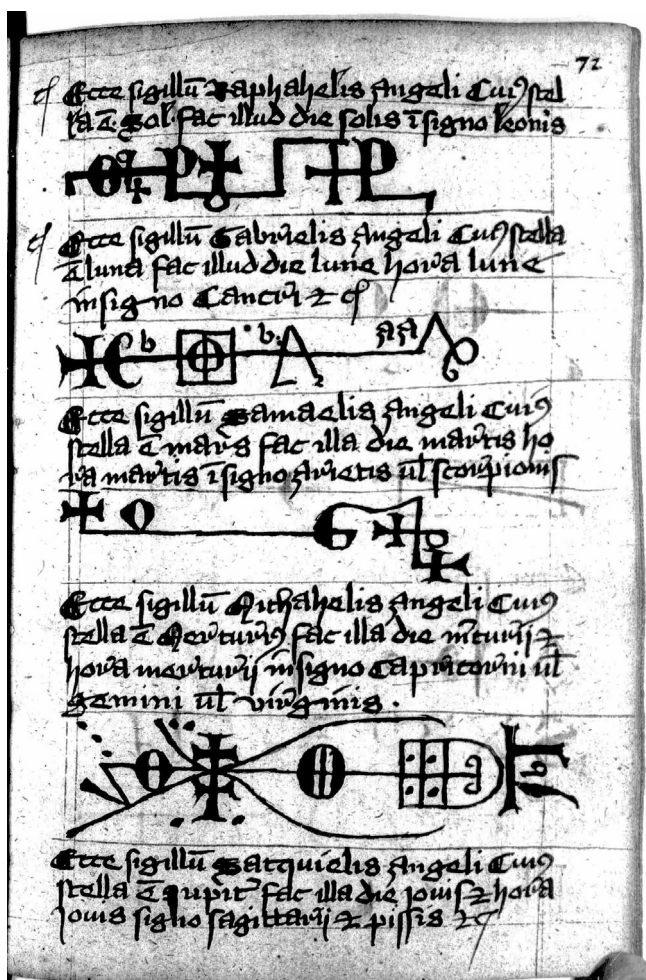 72
Ecce sigillũ Raphahelis Angeli Cuiꝰ stel
la ē Sol fac illud die solis ī signo leonis
Ecce sigillũ Gabrielis Angeli Cuiꝰ stella
ē luna fac illud die lune hora lune
in signo Cancri ⁊ cͭ
b b aa
Ecce sigillũ Samaelis Angeli Cuiꝰ
stella ē mars fac illa die martis ho
ra martis ī signo Arietis ul̄ scorpionis
Ecce sigillũ Michahelis Angeli Cuiꝰ
stella ē Mercuriꝰ fac illa die m̄curij ⁊
hora mercurij in signo Capricorni ul̄
gemini ul̄ virginis .
Ecce sigillũ Satquielis Angeli Cuiꝰ
stella ē fac illa die Jouis ⁊ hora
Jouis signo sagittarij ⁊ pissis ⁊c̄